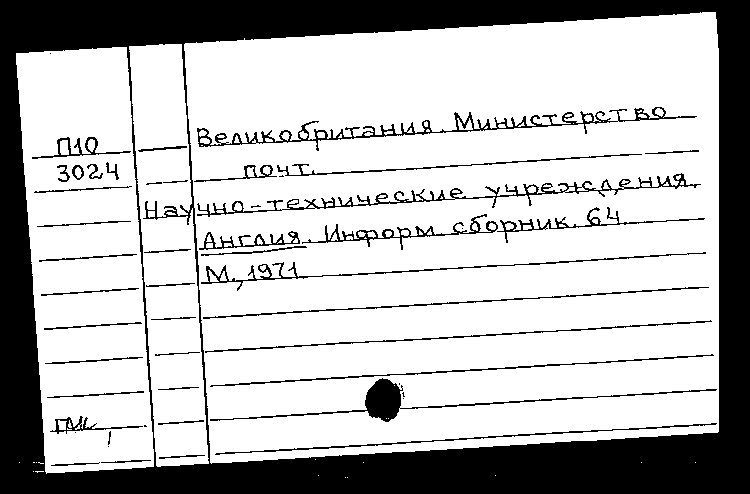 П10
3024
Великобритания. Министерство
почт.
Научно-технические учреждения.
Англия. Информ. сборник. 64.
М., 1971